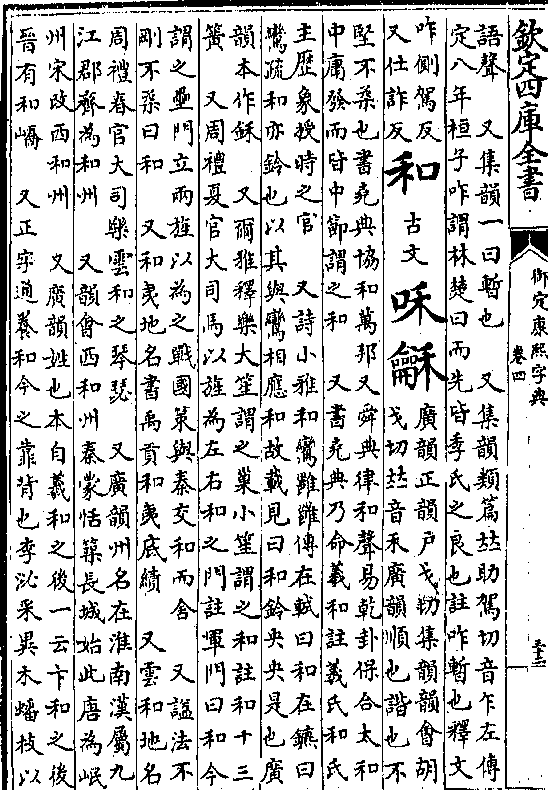 欽定四庫全書
御定康熙字典
卷四
語聲　又集韻一曰暫也　又集韻類篇𠀤助駕切音乍左傳
定八年桓子咋謂林楚曰而先皆季氏之良也註咋暫也釋文
咋側駕反
又仕詐反
和古文咊龢
廣韻正韻戶戈切集韻韻會胡
戈切𠀤音禾廣韻順也諧也不
堅不柔也書堯典協和萬邦又舜典律和聲易乾卦保合太和
中庸發而皆中節謂之和　又書堯典乃命羲和註羲氏和氏
主歷象授時之官　又詩小雅和鸞雝雝傳在軾曰和在鑣曰
鸞疏和亦鈴也以其與鸞相應和故載見曰和鈴央央是也廣
韻本作　又爾雅釋樂大笙謂之巢小笙謂之和註和十三
簧　又周禮夏官大司馬以旌為左右和之門註軍門曰和今
謂之壘門立兩旌以為之戰國策與秦交和而舍　又諡法不
剛不柔曰和　又和夷地名書禹貢和夷底績　又雲和地名
周禮春官大司樂雲和之琴瑟　又廣韻州名在淮南漢屬九
江郡齊為和州　又韻會西和州秦蒙恬築長城始此唐為岷
州宋改西和州　又廣韻姓也本自羲和之後一云卞和之後
晉有和嶠　又正字通養和今之靠背也李泌采異木蟠枝以